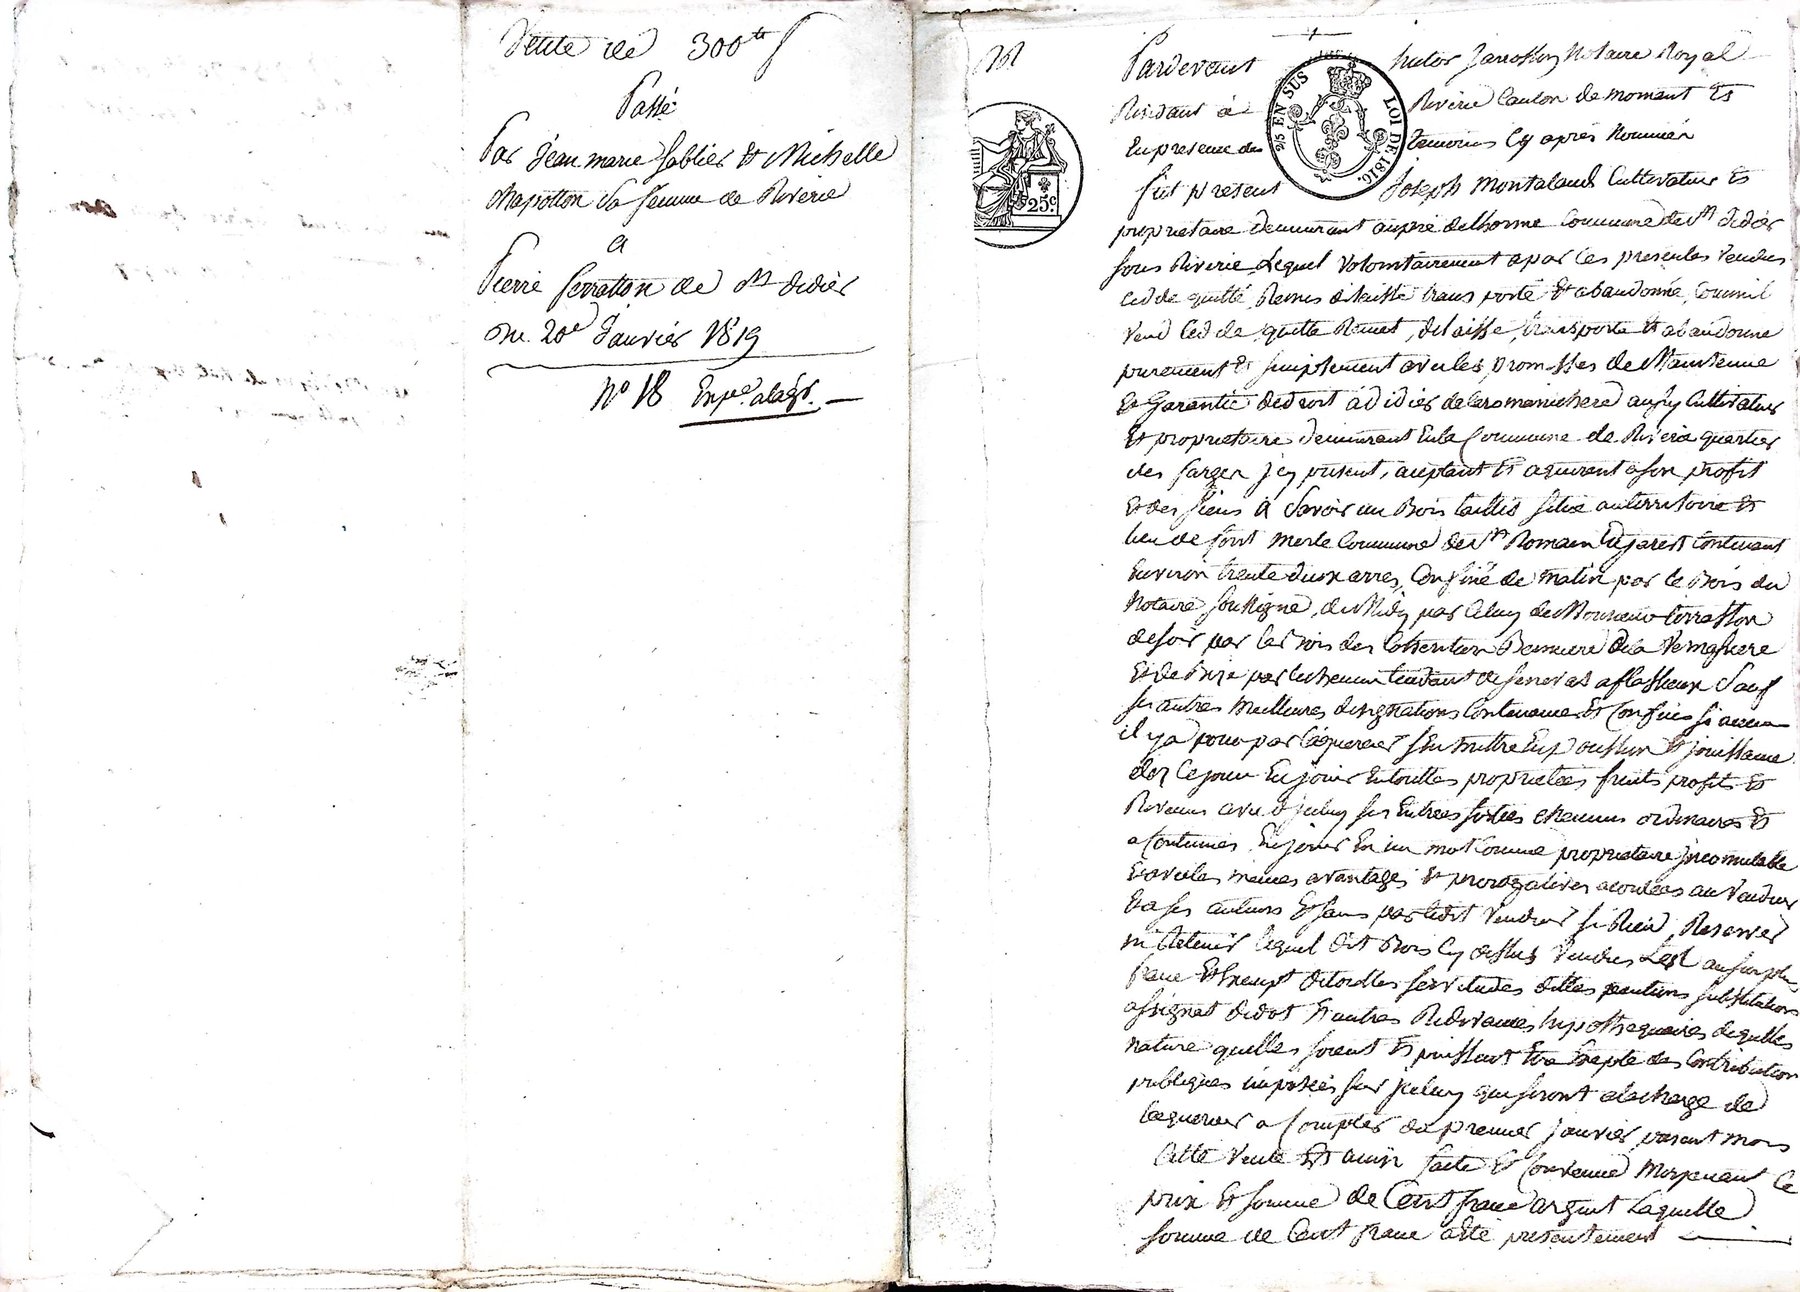 Vente de 300 tt
Passé
Par Jean marie Sablier Et Michelle
Chapotton Sa femme de Riverie
a
Pierre Serraillon de St didier
Du 20e Janvier 1819
No 18 Expe.
Pardevant hector Notaire Royal
Residant à Riverie Canton de mornant Et
En presence des temoins Cy après Nommés
fut présent Joseph Montaland Cultivateur Et
proprietaire demeurant Commune de St didier
sous Riverie Lequel Volontairement a par Ces presentes Vendus
Cedde quitté Remis delaissé transporté Et abandonné, Comm'il
Vend Cedde quitte Remet, delaisse, transporte Et abandonne
purement Et simplement avec les promesses de Maintenue
Et Garantie de droit à didier Cultivateur
Et proprietaire demeurant En la Commune de Riverie quartier
des farges Jcy présent, aceptant Et aquerant a son profit
Et des siens à Savoir un Bois taillis situé au territoire Et
lieu de font merle Commune de St Romain En jarest Contenant
Environ trente deux arres, Confiné de matin par le Bois du
Notaire soussigné, de Midy par Celuy de
de soir par les Bois des
Et de Bize par le chemin tendant de a Sauf
ses autres meilleures designations Contenances Et Confins si aucun
il y a pour par l'aquereur s'en mettre En possession Et jouissance
dez Ce jour En jouir En touttes proprietées fruits profits Et
Revenus avec d'jceluy ses Entrées sorties chemins ordinaires Et
acoutumés En jouir En un mot Comme proprietaire jncomutable
Et avec les memes avantages Et prerogatives acordées au Vendeur
Et a ses auteurs Et sans par ledit Vendeur si Rien Reserver
ni Retenir lequel dit Bois Cy dessus Vendus Lest au surplus
franc Et Exempt de touttes servitudes dettes pentions substitutions
assignat de dot Et autres Redevances hypothequaires de quelles
nature quelles soient Et puissent Etre Excepté des Contribution
publiques imposées sur jceluy qui seront a la charge de
l'aquereur a Compter du premier janvier présent mois
Cette Vente Est ainsy faite Et Convenue Moyenant le
prix Et somme de Cent franc argent Laquelle
somme de Cent franc a Eté presentement
2/5 EN SUS
LOI DE 1816.
25c.